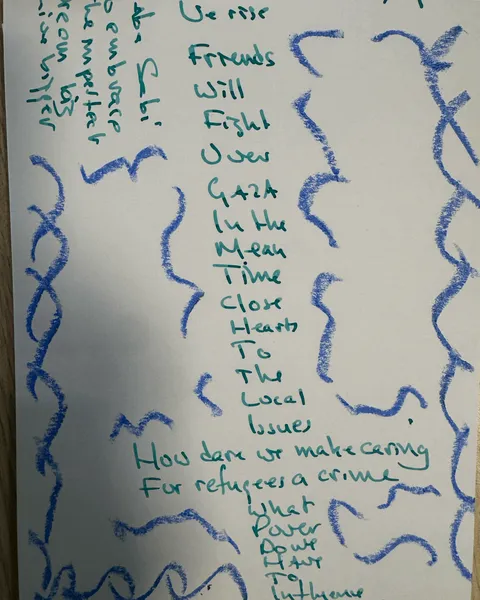 We rise
Friends
Will
Fight
Over
GAZA
In the
Mean
Time
Close
Hearts
To
The
Local
Issues
How dare we make caring
For refugees a crime
What
Power
Do we
Have
To
Influence
Sabi
to embrace
the imperfect